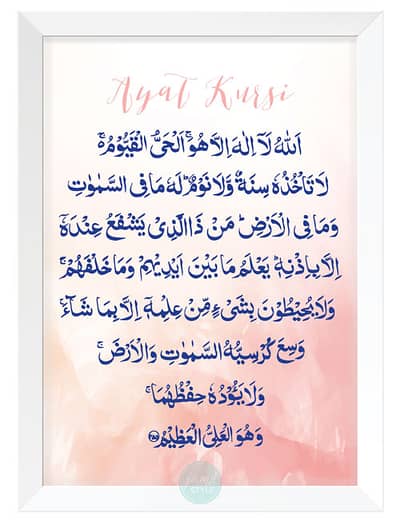 Ayat Kursi
اَللّٰهُ لَاۤ اِلٰهَ اِلَّا هُوَۚ اَلْحَیُّ الْقَیُّوْمُ ۚ۬
لَا تَاْخُذُهٗ سِنَةٌ وَّلَا نَوْمٌؕ لَهٗ مَا فِی السَّمٰوٰتِ
وَمَا فِی الْاَرْضِؕ مَنْ ذَا الَّذِیْ یَشْفَعُ عِنْدَهٗۤ
اِلَّا بِاِذْنِهٖؕ یَعْلَمُ مَا بَیْنَ اَیْدِیْهِمْ وَمَا خَلْفَهُمْۚ
وَلَا یُحِیْطُوْنَ بِشَیْءٍ مِّنْ عِلْمِهٖۤ اِلَّا بِمَا شَآءَۚ
وَسِعَ كُرْسِیُّهُ السَّمٰوٰتِ وَالْاَرْضَۚ
وَلَا یَـُٔوْدُهٗ حِفْظُهُمَاۚ
وَهُوَ الْعَلِیُّ الْعَظِیْمُ ﴿۲۵۵﴾